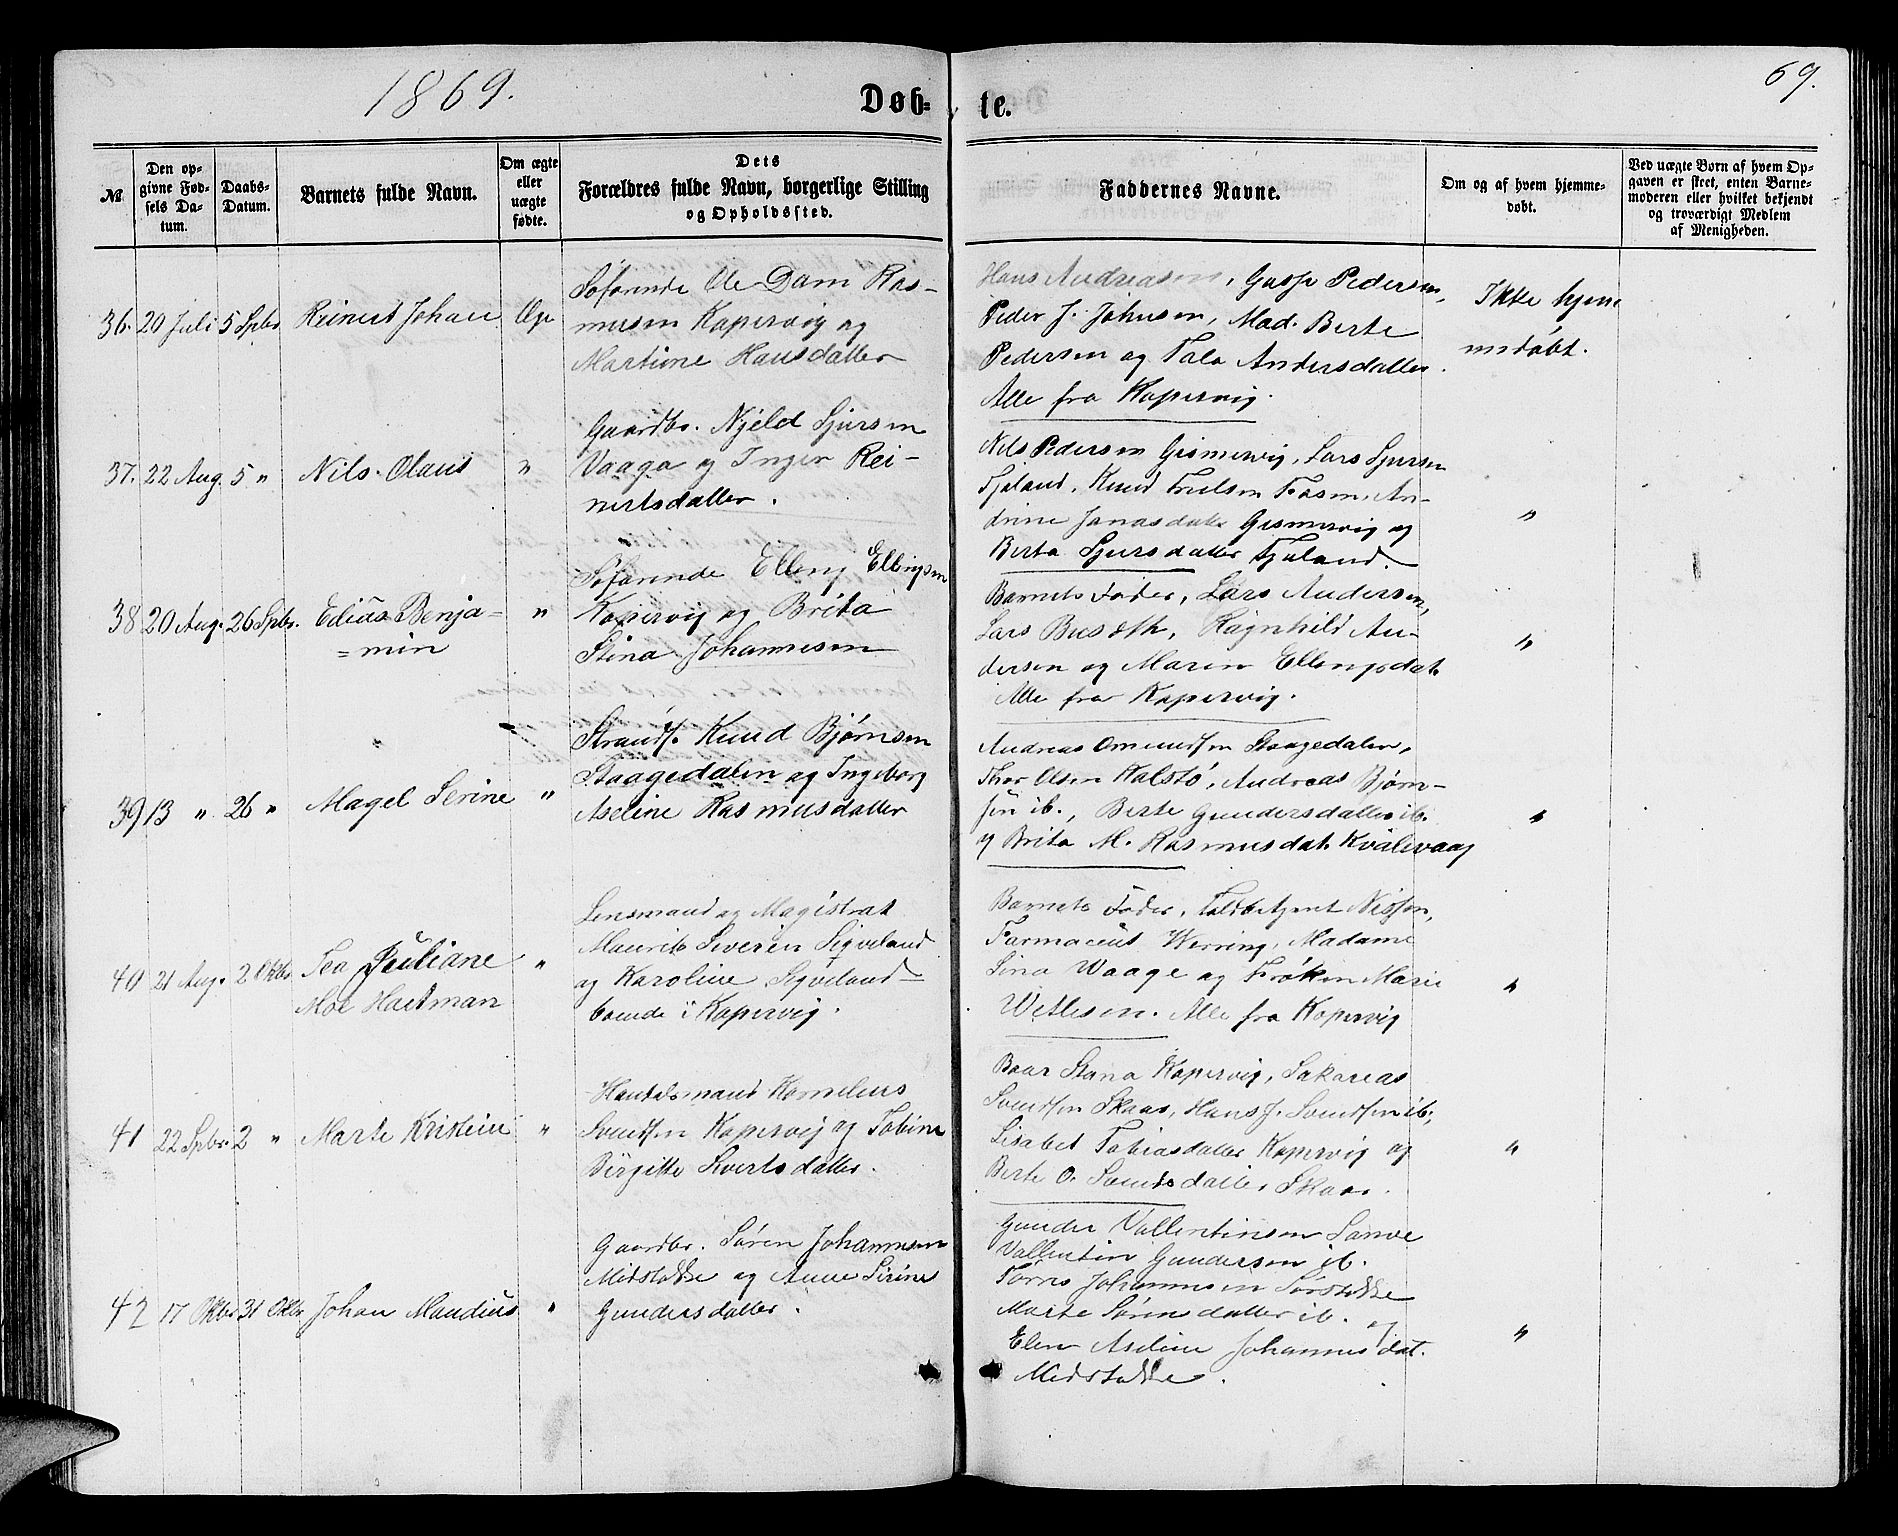 1869.
Døb-
te.
69.
№
Den op-
givne Fød-
sels Da-
tum.
Daabs-
Datum.
Barnets fulde Navn.
Om ægte
eller
uægte
fødte.
Dets
Forældres fulde Navn, borgerlige Stilling
og Opholdssted.
Faddernes Navne.
Om og af hvem hjemme-
døbt.
Ved uægte Børn af hvem Op-
gaven er skeet, enten Barne-
moderen eller hvilket bekjendt
og troværdigt Medlem
af Menigheden.
36. 20 Juli 5 Spbr. Reinert Johan Ægt
Søfarende Ole Dam Ras-
musen Kopervig og
Martine Hansdatter
Hans Andreasen, Pedersen,
Peder J. Johnsen, Mad. Berte
Pedersen og Tala Andersdatter.
Alle fra Kopervig.
Ikke hjem
mdøbt.
37. 22 Aug. 5 " Nils Olaus "
Gaardbr. Njeld Sjursen
Vaaga og Inger Rei-
nertsdatter.
Nils Pedersen Gismervig, Lars Sjursen
Fjøland, Knud Fosen, An-
drine Jonasdatt. Gismervig og
Berta Sjursdatter Fjøland.
"
38 20 Aug. 26 Spbr. Edias Benja-
=min "
Søfarende Elling Ellingsen
Kopervig og Brita
Stina Johannesen
Barnets Fader, Lars Andersen,
Lars Buseth, Ragnhild An-
dersen og Maren Ellingsdat.
Alle fra Kopervig.
"
39 13 " 26 " Magel Serine "
Strands. Knud Bjørnsen
Staagedalen og Ingeborg
Aseline Rasmusdatter
Andreas Omundsen Staagedalen,
Thor Olsen Halstø, Andreas Bjørn-
sen ib., Berte Gundersdatter ib.
og Brita M. Rasmusdat. Kvalevaag
"
40 21 Aug. 2 Oktbr. Tea Juliane
Moe Hartman "
Lensmand og Magistrat
Maurits Severin Sigveland
og Karoline Sigveland
boende i Kopervig.
Barnets Fader, Toldbetjent Nissen,
Farmaceut Werring, Madame
Lina Waage og Frøken Marie
Wetlesen. Alle fra Kopervig
"
41 22 Spbr. 2 " Marte Kristine "
Handelsmand Kornelius
Svendsen Kopervig og Tobine
Birgitte Sivertsdatter.
Baar Stana Kopervig, Sakarias
Svendsen Skaar, Hans J. Svendsen ib.,
Lisabet Tobiasdatter Kopervig og
Berte O. Svendsdatter Skaar.
"
42 17 Oktbr. 31 Oktbr. Johan Maudius "
Gaardbr. Søren Johannesen
Midstokke og Anne Serine
Gundersdatter.
Gunder Vallentinsen Sanve
Vallentin Gundersen ib.
Tørres Johannesen Sørstokke
Marte Sørensdatter ib. og
Elen Aseline Johannesdat.
Midstokke.
"